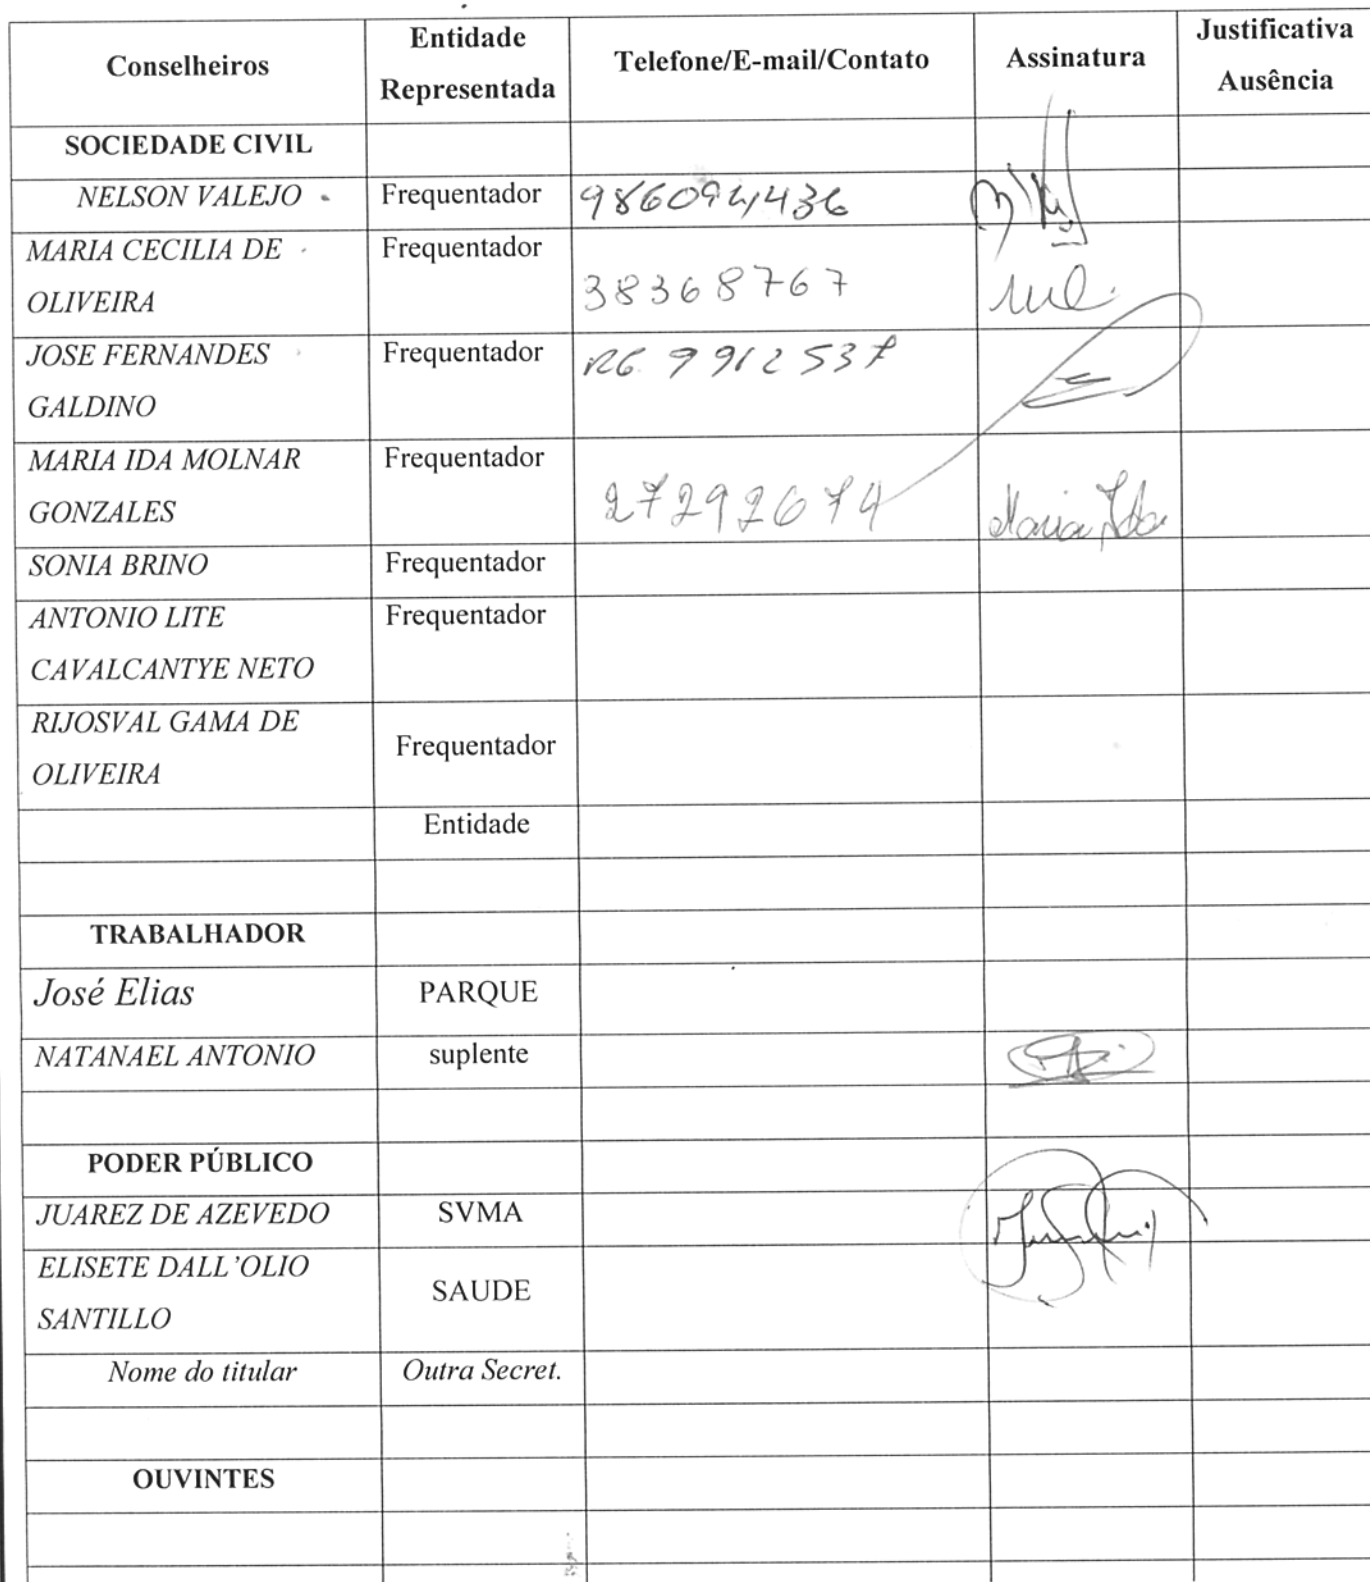 Conselheiros
Entidade
Representada
Telefone/E-mail/Contato
Assinatura
Justificativa
Ausência
SOCIEDADE CIVIL
NELSON VALEJO
Frequentador
986094436
MARIA CECILIA DE
OLIVEIRA
Frequentador
38368767
JOSE FERNANDES
GALDINO
Frequentador
RG. 9912537
MARIA IDA MOLNAR
GONZALES
Frequentador
27292674
Maria Ida
SONIA BRINO
Frequentador
ANTONIO LITE
CAVALCANTYE NETO
Frequentador
RIJOSVAL GAMA DE
OLIVEIRA
Frequentador
Entidade
TRABALHADOR
José Elias
PARQUE
NATANAEL ANTONIO
suplente
PODER PÚBLICO
JUAREZ DE AZEVEDO
SVMA
ELISETE DALL'OLIO
SANTILLO
SAUDE
Nome do titular
Outra Secret.
OUVINTES